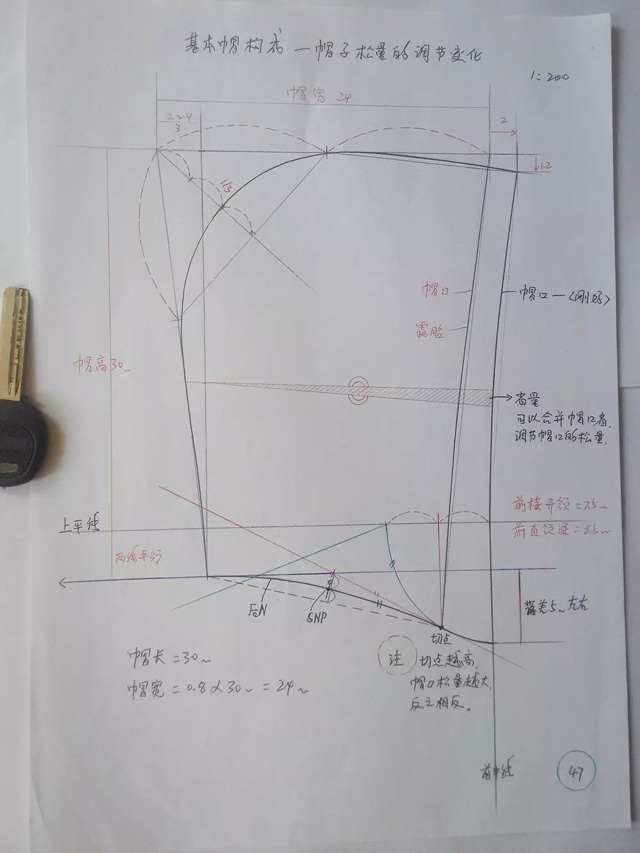 基本帽构成 — 帽子松量的调节变化
1:200
帽宽 24
2~4
3
2
1.2
1/3
帽口
帽口—<刚好>
露脸
帽高30~
省量
可以合并帽口省,
调节帽口的松量.
上平线
前横开领=7.5~
前直领深=8.5~
后N
SNP
5~左右
切点
注
切点越高,
帽口松量越大,
反之相反.
帽长=30~
帽宽=0.8×30~=24~
前中线
47